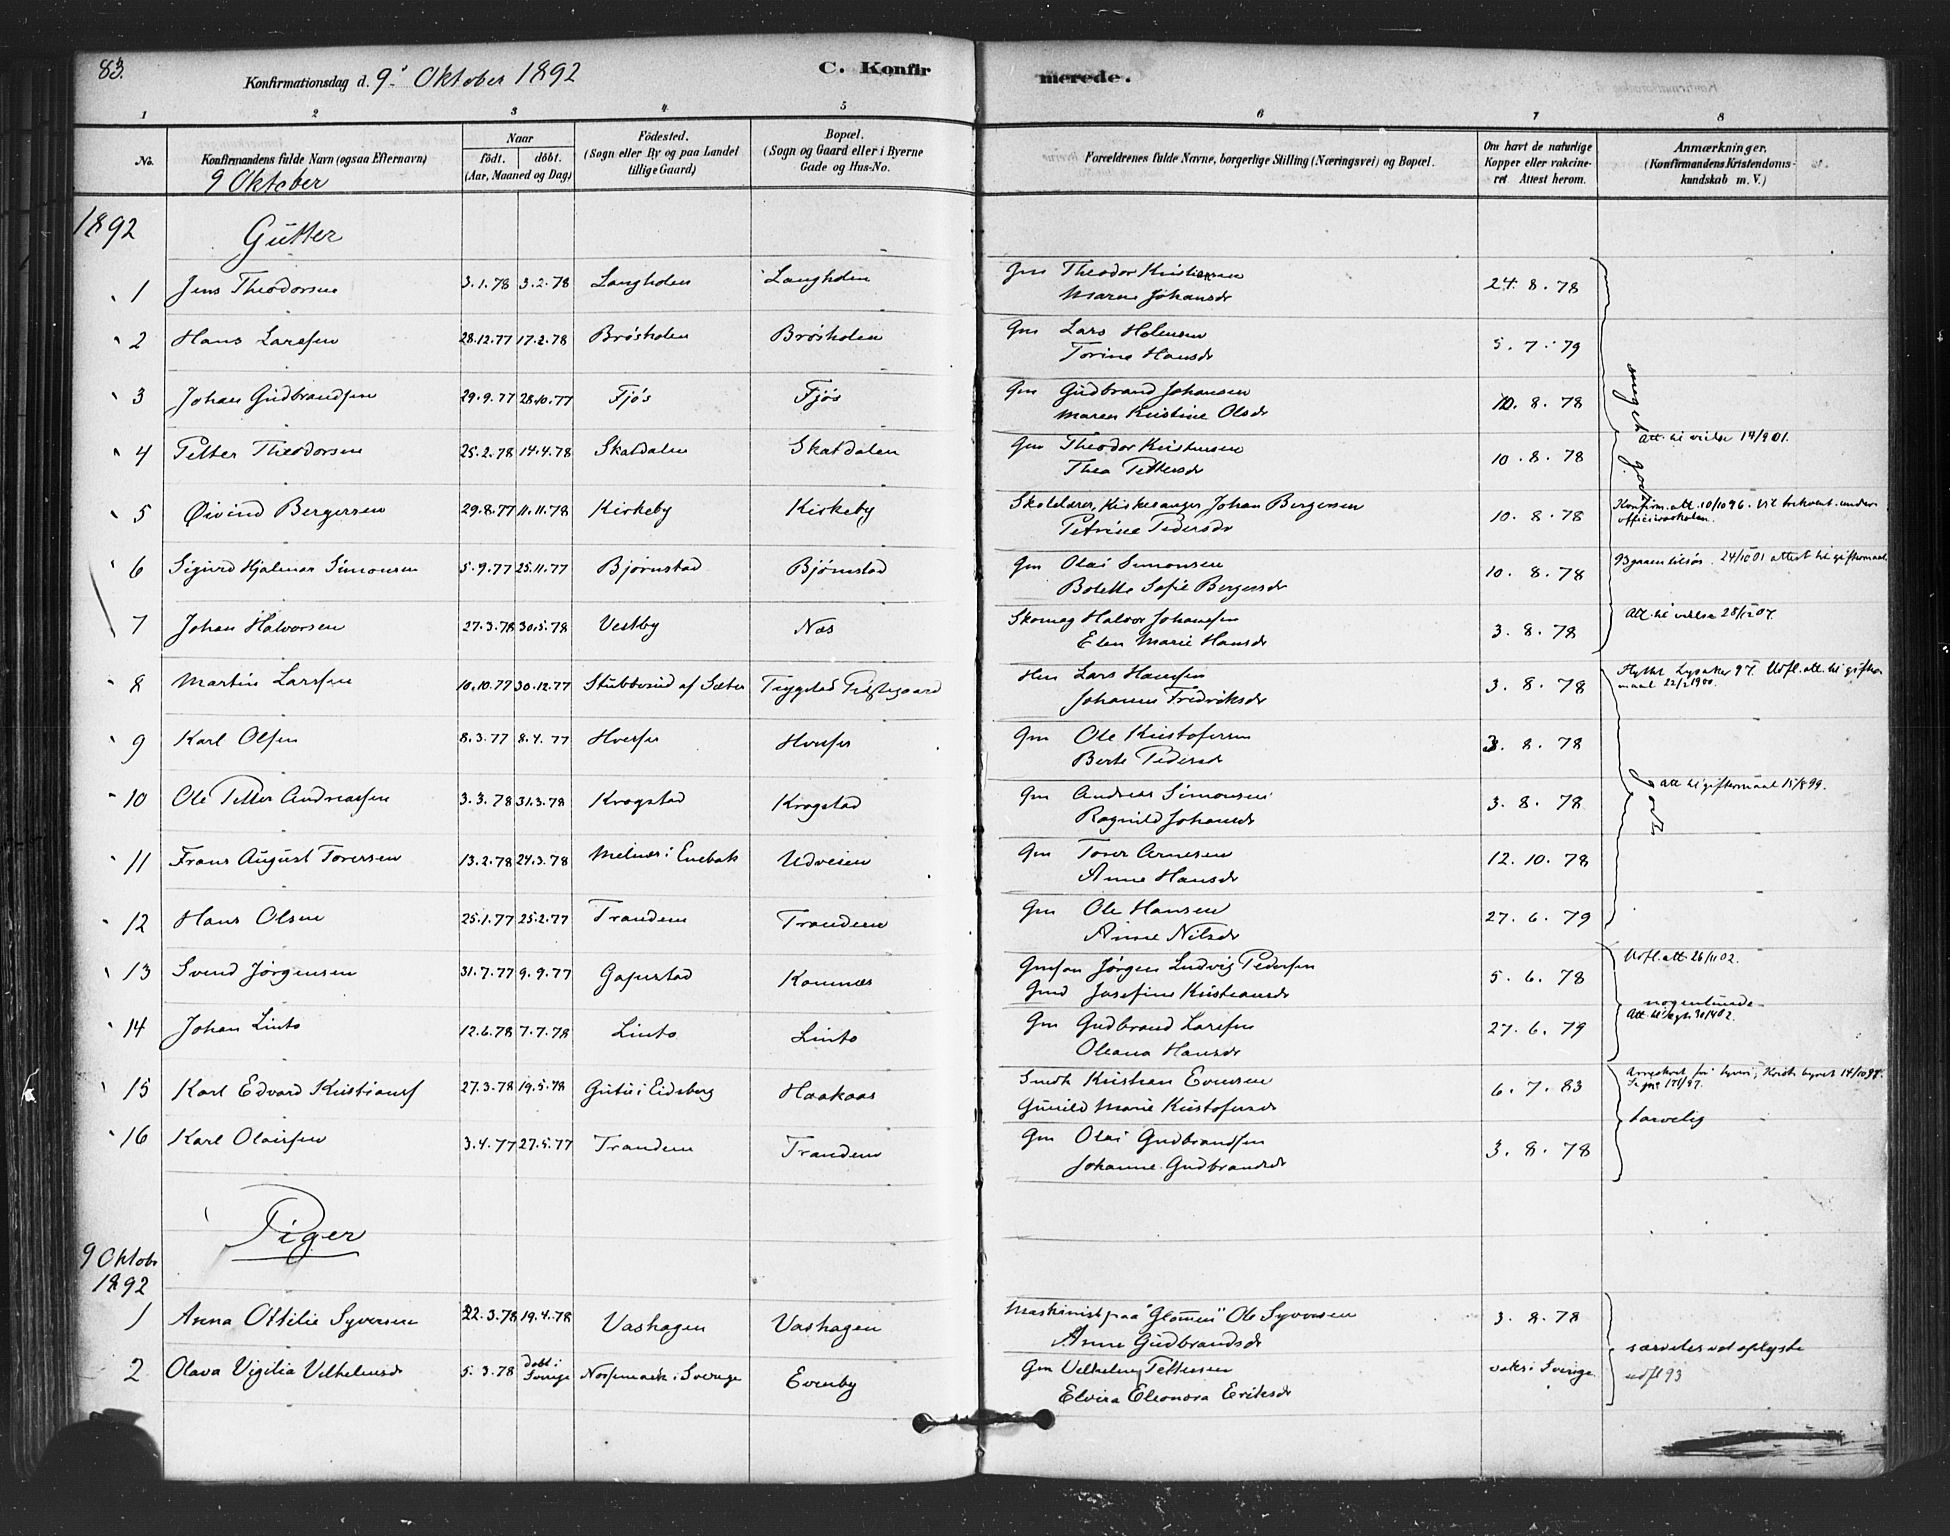 83.
Konfirmationsdag d. 9. Oktober 1892
C. Konfirmerede.
1 2 3 4 5 6 7 8
No. Konfirmandens fulde Navn (ogsaa Efternavn) Naar født. døbt. (Aar, Maaned og Dag) Fødested. (Sogn eller By og paa Landet tillige Gaard) Bopæl. (Sogn og Gaard eller i Byerne Gade og Hus-No. Forældrenes fulde Navne, borgerlige Stilling (Næringsvei) og Bopæl. Om havt de naturlige Kopper eller vakcineret Attest herom. Anmærkninger. (Konfirmandens Kristendomskundskab m. V.)
9 Oktober
1892 Gutter
1 Jens Theodorsen 3.1.78 3.2.78 Langholen Langholen Gm Theodor Kristiansen 24. 8. 78
Maren Johansdr
2 Hans Larsen 28.12.77 17.2.78 Brøsholen Brøsholen Gm Lars Holmsen 5. 7. 79
Torine Hansdr
3 Johan Gudbrandsen 29.9.77 28.10.77 Fjøs Fjøs Gm Gudbrand Johansen 10. 8. 78 meget godt
Maren Kristine Olsdr
4 Petter Theodorsen 25.2.78 14.4.78 Skatdalen Skatdalen Gm Theodor Kristiansen 10. 8. 78 Att. til vielse 14/9 01.
Thea Pettersdr
5 Øivind Bergersen 29.8.77 11.11.78 Kirkeby Kirkeby Skolelærer, Kirkesanger Johan Bergersen 10. 8. 78 Konfirm. att. 10/10 96. Vil frekvent. underofficierskolen.
Petrine Pedersdr
6 Sigurd Hjalmar Simonsen 5.9.77 25.11.77 Bjørnstad Bjørnstad Gm Olai Simonsen 10. 8. 78 24/10 01 attest til giftermaal
Bolette Sofie Bergersdr
7 Johan Halvorsen 27.3.78 30.5.78 Vestby Næs Skomag Halvor Johansen 3. 8. 78 Att. til vielse 28/12 07.
Elen Marie Hansdr
8 Martin Larsen 10.10.77 30.12.77 Stubberud af Sæter Trygstad Prestegaard Hm Lars Hansen 3. 8. 78 Flyttet Lysaker 97. Udfl. att. til giftermaal 22/2 1900.
Johanne Fredriksdr
9 Karl Olsen 8.3.77 8.4.77 Hverfer Hverfer Gm Ole Kristofersen 3. 8. 78
Berte Pedersd
10 Ole Petter Andreassen 3.3.78 31.3.78 Krogstad Krogstad Gm Andreas Simonsen 3. 8. 78 godt Att. til giftermaal 15/8 99.
Ragnild Johansdr
11 Frans August Toversen 13.2.78 24.3.78 Melnæs i Enebak Udveien Gm Tover Arnesen 12. 10. 78
Anne Hansdr
12 Hans Olsen 25.1.77 25.2.77 Trandem Trandem Gm Ole Hansen 27. 6. 79
Anne Nilsdr
13 Svend Jørgensen 31.7.77 9.9.77 Gapestad Kamnes Gmsøn Jørgen Ludvig Pedersen 5. 6. 78 Udfl. att. 26/11 02.
Gmd Josefine Kristiansdr nogenlunde
14 Johan Linto 12.6.78 7.7.78 Linto Linto Gm Gudbrand Larsen 27. 6. 79
Oleana Hansdr
15 Karl Edvard Kristians 27.3.78 19.5.78 Gutu i Eidsberg Haakaas Smeh Kristian Evensen 6. 7. 83
Gunild Marie Kristofersdr tarvelig
16 Karl Olaisen 3.4.77 27.5.77 Trandem Trandem Gm Olai Gudbrandsen 3. 8. 78
Johanne Gudbrandsdr
Piger
9 Oktobr
1892
1 Anna Ottilie Syversen 22.3.78 19.4.78 Vashagen Vashagen Maskinist paa "Glommen" Ole Syversen 3. 8. 78
Anne Gudbrandsdr særdeles vel oplyste
2 Olava Vigilia Vilhelmsdr 5.3.78 døbt i Sverige Nossemark i Sverige Evenby Gm Vilhelm Pettersen vaks i Sverige udfl 93
Elvira Eleonora Eriksdr